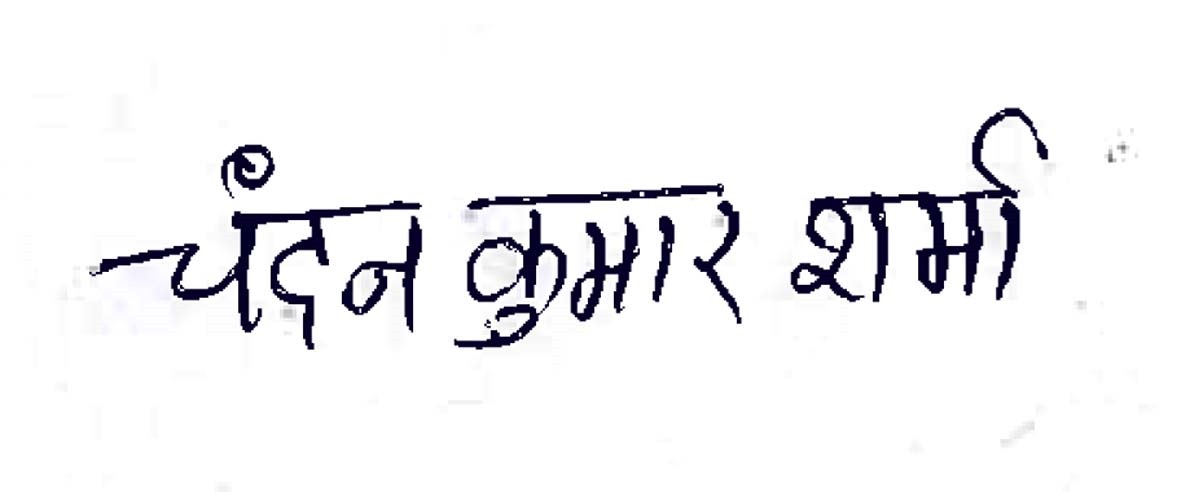 चंदन कुमार शर्मा